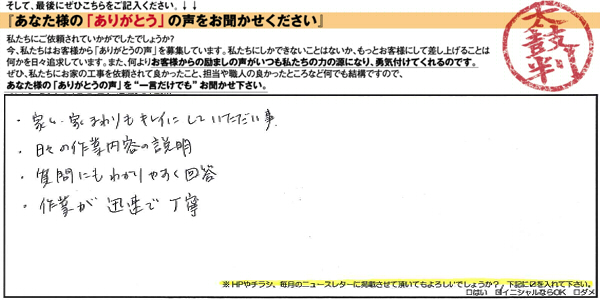 そして、最後にぜひこちらをご記入ください。↓↓
『あなた様の「ありがとう」の声をお聞かせください』
私たちにご依頼されていかがでしたでしょうか？
今、私たちはお客様から「ありがとうの声」を募集しています。私たちにしかできないことはないか、もっとお客様にして差し上げることは
何かを日々追求しています。また、何よりお客様からの励ましの声がいつも私たちの力の源になり、勇気付けてくれるのです。
ぜひ、私たちにお家の工事を依頼されて良かったこと、担当や職人の良かったところなど何でも結構ですので、
あなた様の「ありがとうの声」を“一言だけでも”お聞かせ下さい。
太鼓判
・家も家まわりもキレイにしていただい事
・日々の作業内容の説明
・質問にもわかりやすく回答
・作業が迅速で丁寧
※HPやチラシ、毎月のニュースレターに掲載させて頂いてもよろしいでしょうか？，下記に☑を入れて下さい。
□はい ☑イニシャルならOK □ダメ